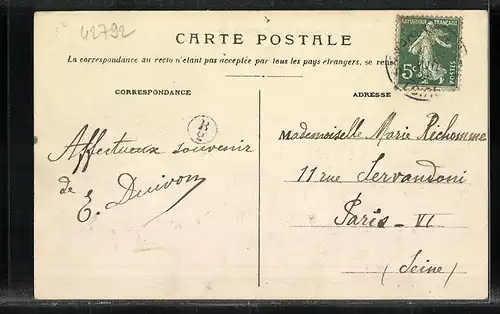 42792
CARTE POSTALE
La correspondance au recto n'étant pas acceptée par tous les pays étrangers, se rens
CORRESPONDANCE
ADRESSE
RÉPUBLIQUE FRANÇAISE
5c
POSTES
B
Affectueux souvenir
de
E.
Mademoiselle Marie Richomme
11 rue Servandoni
Paris - VI
(Seine)